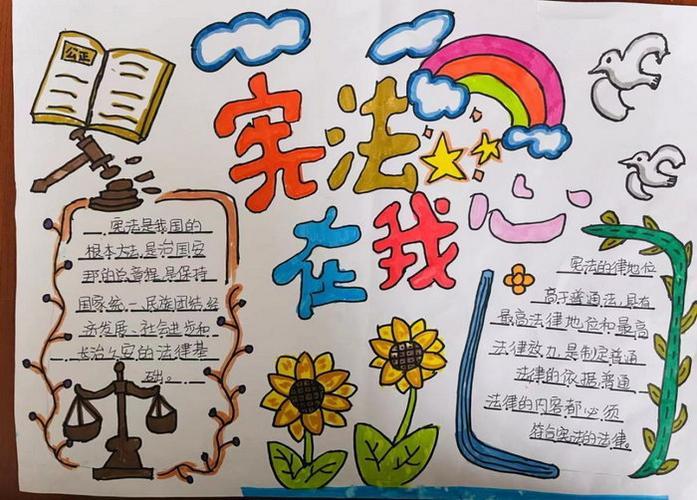 公正
宪法
在我心
宪法是我国的
根本大法,是治国安
邦的总章程,是保持
国家统一、民族团结、经
济发展、社会进步和
长治久安的法律基
础。
宪法的律地位
高于普通法,具有
最高法律地位和最高
法律效力,是制定普通
法律的依据,普通
法律的内容都必须
符合宪法的法律。